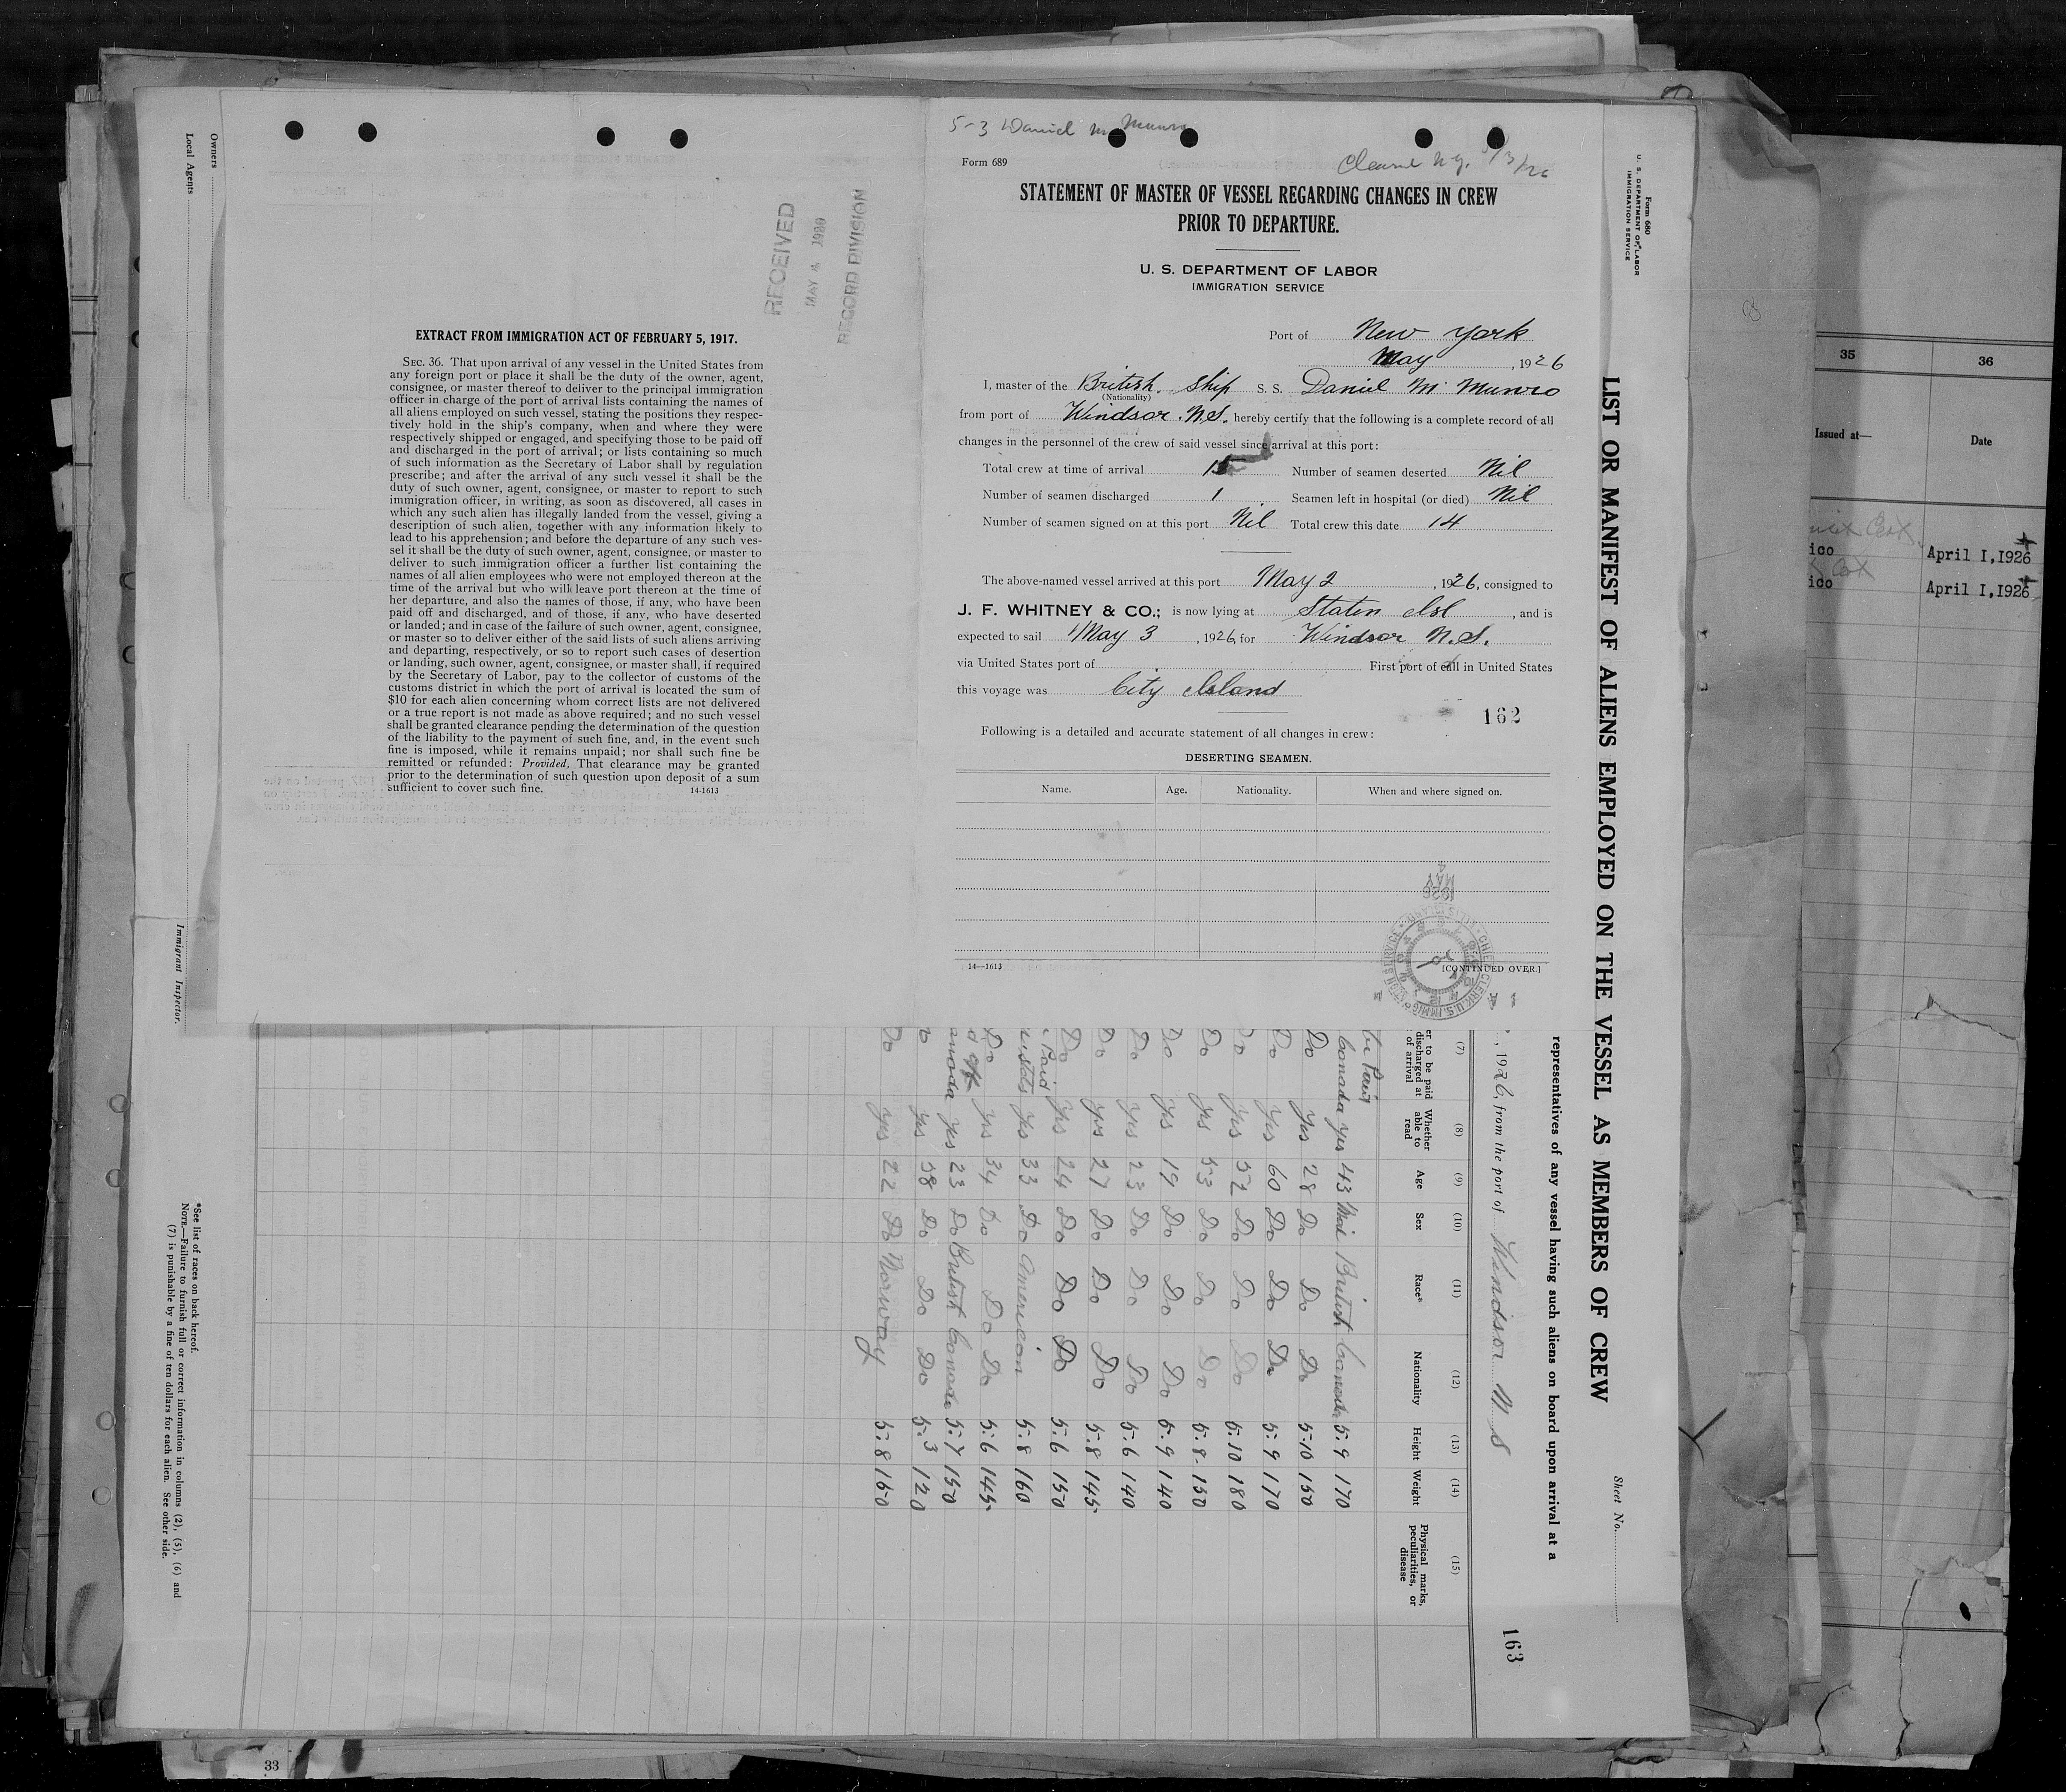 5-3 Daniel M Munro
Cleared N.Y. 5/3/26
Form 689
STATEMENT OF MASTER OF VESSEL REGARDING CHANGES IN CREW
PRIOR TO DEPARTURE.
U. S. DEPARTMENT OF LABOR
IMMIGRATION SERVICE
Port of New York
May, 1926
I, master of the British Ship S. S. Daniel M Munro
(Nationality)
from port of Windsor N.S. hereby certify that the following is a complete record of all
changes in the personnel of the crew of said vessel since arrival at this port:
Total crew at time of arrival 15 Number of seamen deserted Nil
Number of seamen discharged 1 Seamen left in hospital (or died) Nil
Number of seamen signed on at this port Nil Total crew this date 14
The above-named vessel arrived at this port May 2, 1926, consigned to
J. F. WHITNEY & CO.; is now lying at Staten Isl, and is
expected to sail May 3, 1926, for Windsor N.S.
via United States port of First port of call in United States
this voyage was City Island
162
Following is a detailed and accurate statement of all changes in crew:
DESERTING SEAMEN.
Name. Age. Nationality. When and where signed on.
1926
MAY
4
CHIEF CLERK U.S. IMMIGRATION SERVICE ELLIS ISLAND
14—1613 [CONTINUED OVER.]
RECEIVED
MAY 4 1926
RECORD DIVISION
EXTRACT FROM IMMIGRATION ACT OF FEBRUARY 5, 1917.
SEC. 36. That upon arrival of any vessel in the United States from
any foreign port or place it shall be the duty of the owner, agent,
consignee, or master thereof to deliver to the principal immigration
officer in charge of the port of arrival lists containing the names of
all aliens employed on such vessel, stating the positions they respec-
tively hold in the ship's company, when and where they were
respectively shipped or engaged, and specifying those to be paid off
and discharged in the port of arrival; or lists containing so much
of such information as the Secretary of Labor shall by regulation
prescribe; and after the arrival of any such vessel it shall be the
duty of such owner, agent, consignee, or master to report to such
immigration officer, in writing, as soon as discovered, all cases in
which any such alien has illegally landed from the vessel, giving a
description of such alien, together with any information likely to
lead to his apprehension; and before the departure of any such ves-
sel it shall be the duty of such owner, agent, consignee, or master to
deliver to such immigration officer a further list containing the
names of all alien employees who were not employed thereon at the
time of the arrival but who will leave port thereon at the time of
her departure, and also the names of those, if any, who have been
paid off and discharged, and of those, if any, who have deserted
or landed; and in case of the failure of such owner, agent, consignee,
or master so to deliver either of the said lists of such aliens arriving
and departing, respectively, or so to report such cases of desertion
or landing, such owner, agent, consignee, or master shall, if required
by the Secretary of Labor, pay to the collector of customs of the
customs district in which the port of arrival is located the sum of
$10 for each alien concerning whom correct lists are not delivered
or a true report is not made as above required; and no such vessel
shall be granted clearance pending the determination of the question
of the liability to the payment of such fine, and, in the event such
fine is imposed, while it remains unpaid; nor shall such fine be
remitted or refunded: Provided, That clearance may be granted
prior to the determination of such question upon deposit of a sum
sufficient to cover such fine. 14-1613
Form 680
U. S. DEPARTMENT OF LABOR
IMMIGRATION SERVICE
LIST OR MANIFEST OF ALIENS EMPLOYED ON THE VESSEL AS MEMBERS OF CREW
Sheet No.
representatives of any vessel having such aliens on board upon arrival at a
, 1926, from the port of Windsor N S
163
(7) (8) (9) (10) (11) (12) (13) (14) (15)
er to be paid discharged at of arrival Whether able to read Age Sex Race* Nationality Height Weight Physical marks, peculiarities, or disease
be Paid
Canada yes 43 Male British Canada 5.9 170
Do yes 28 Do Do Do 5.10 150
Do yes 60 Do Do Do 5.9 170
Do yes 52 Do Do Do 5.10 180
Do yes 53 Do Do Do 5.8 150
Do yes 19 Do Do Do 5.9 140
Do yes 23 Do Do Do 5.6 140
Do yes 27 Do Do Do 5.8 145
Do yes 24 Do Do Do 5.6 150
Paid
states yes 33 Do American 5.8 160
Do yes 34 Do Do Do 5.6 145
off
anada yes 23 Do British Canada 5.7 150
o yes 58 Do Do Do 5.3 120
Do yes 22 Do Norway 5.8 150
Owners
Local Agents
Immigrant Inspector.
*See list of races on back hereof.
NOTE.—Failure to furnish full or correct information in columns (2), (5), (6) and
(7) is punishable by a fine of ten dollars for each alien. See other side.
35 36
Issued at— Date
ico April 1, 1926
ico April 1, 1926
33